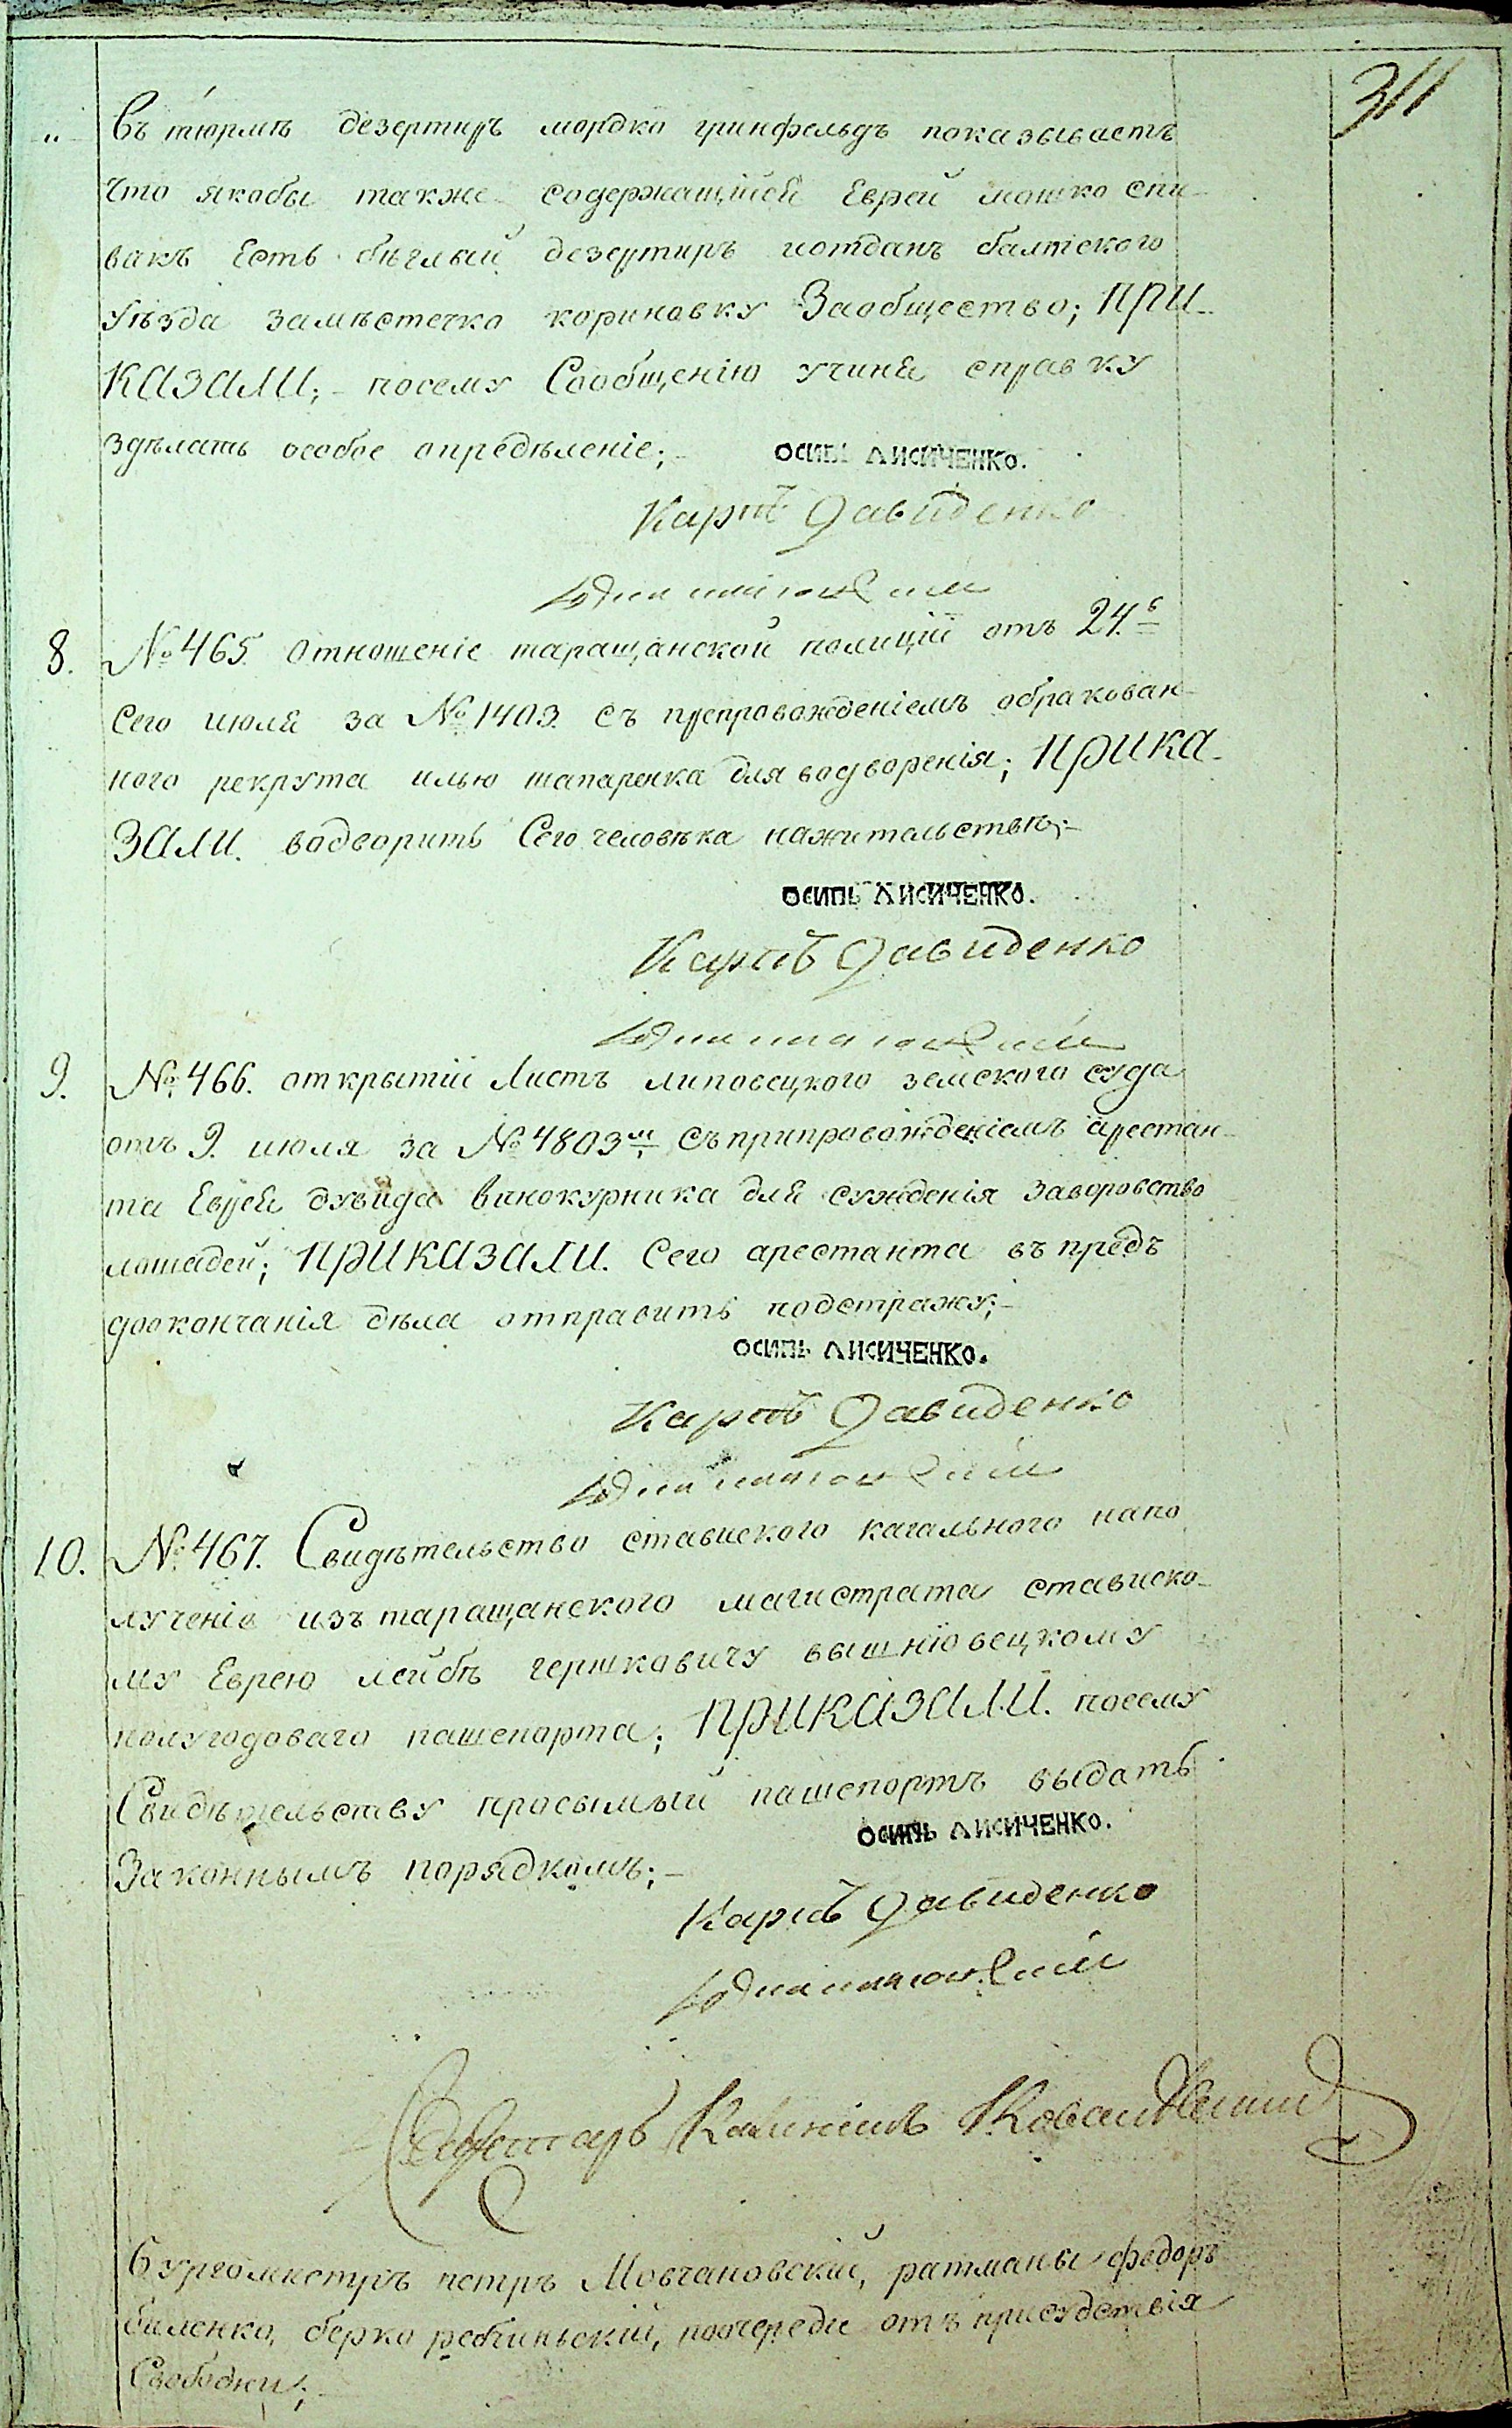 311
„ Въ тюрмѣ дезертиръ мордко гринфельдъ показываетъ
что якобы также содержащійся Еврей мошко спи-
вакъ Есть бѣглый дезертиръ иотданъ балтского
уѣзда замѣстечко кориновку Заобщество; ПРИ-
КАЗАЛИ; - посему Сообщенію учиня справку
здѣлать особое опредѣленіе; -
ОСИПЪ ЛИСИЧЕНКО.
Карпъ Давиденко
8. № 465. Отношеніе таращанской полиціи отъ 24.
Сего июля за № 1403. съ препровожденіемъ обракован-
ного рекрута илью шапаренка для водворенія; ПРИКА-
ЗАЛИ. водворить Сего человѣка нажительствѣ; -
ОСИПЪ ЛИСИЧЕНКО.
Карпъ Давиденко
9. № 466. открытій Листъ липовецкого земского суда
отъ 9. июля за № 4803м съприпровожденіемъ арестан-
та Еврея дувида винокурника для сужденія заворовство
лошадей; ПРИКАЗАЛИ. Сего арестанта въ предъ
доокончанія дѣла отправить подстражу; -
ОСИПЪ ЛИСИЧЕНКО.
Карпъ Давиденко
10. № 467. Свидѣтельство ставиского кагального напо
лученіе изъ таращанского магистрата стависко-
му Еврею лейбѣ гершковичу вышніовецкому
полугодоваго пашепорта; ПРИКАЗАЛИ. посему
Свидѣтельству просымый пашепортъ выдать
ОСИПЪ ЛИСИЧЕНКО.
Законнымъ порядкомъ; -
Карпъ Давиденко
Бургомистръ петръ Мовчановскій, ратманы федоръ
биленко, берко поочереди отъ присудствія
Свободни; -